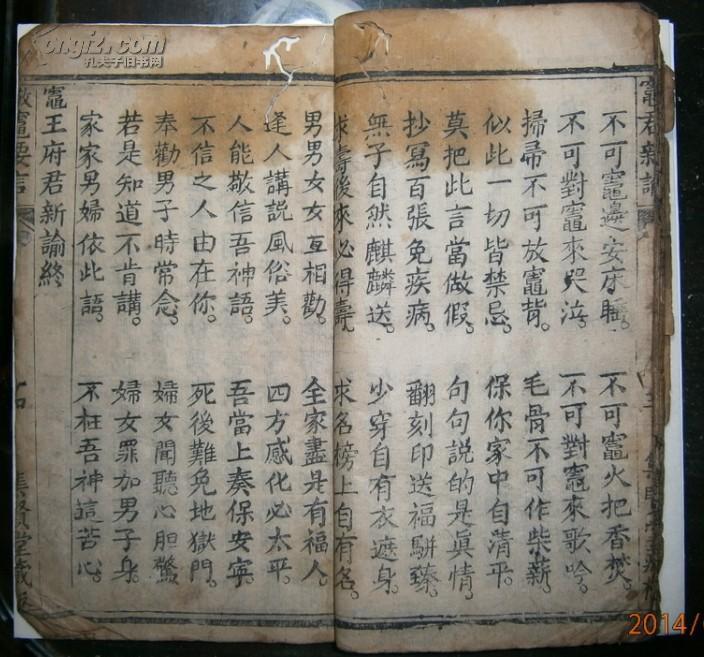 竈君新諭
不可竈邊安床睡。不可竈火把香焚。
不可對竈來哭泣。不可對竈來歌吟。
掃帚不可放竈背。毛骨不可作柴薪。
似此一切皆禁忌。保你家中自清平。
莫把此言當做假。句句說的是眞情。
抄寫百張免疾病。翻刻印送福駢臻。
無子自然麒麟送。少穿自有衣遮身。
求壽後來必得壽。求名榜上自有名。
男男女女互相勸。全家盡是有福人。
逢人講説風俗美。四方感化必太平。
人能敬信吾神語。吾當上奏保安寧。
不信之人由在你。死後難免地獄門。
奉勸男子時常念。婦女聞聽心胆驚。
若是知道不肯講。婦女罪加男子身。
家家男婦依此語。不枉吾神這苦心。
竈王府君新諭終
敬竈要言 集賢堂藏
孔夫子旧书网
2014/